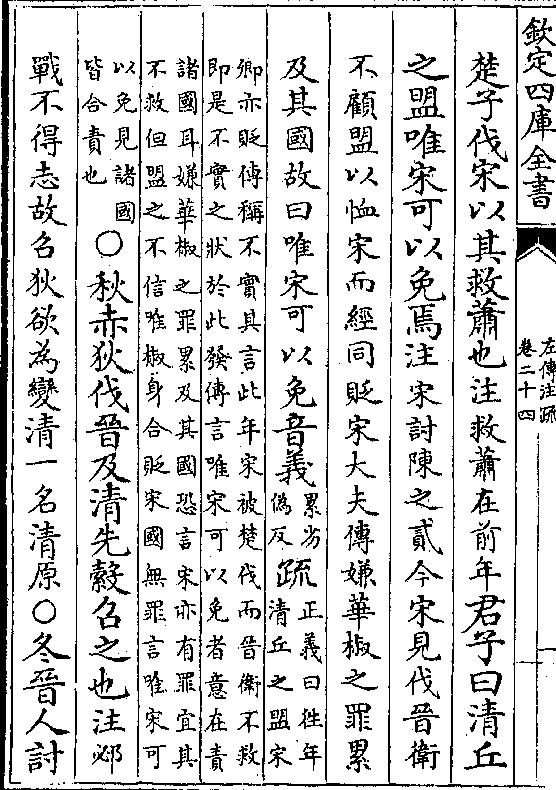 欽定四庫全書
左傳注疏
卷二十四
楚子伐宋以其救蕭也注救蕭在前年君子曰清丘
之盟唯宋可以免焉注宋討陳之貳今宋見伐晉衛
不顧盟以恤宋而經同貶宋大夫傳嫌華椒之罪累
及其國故曰唯宋可以免音義累劣
偽反疏正義曰徃年
清丘之盟宋
卿亦貶傳稱不實其言此年宋被楚伐而晉衛不救
即是不實之狀於此發傳言唯宋可以免者意在責
諸國耳嫌華椒之罪累及其國恐言宋亦有罪宜其
不救但盟之不信唯椒身合貶宋國無罪言唯宋可
以免見諸國
皆合責也○秋赤狄伐晉及清先縠召之也注邲
戰不得志故召狄欲為變清一名清原○冬晉人討